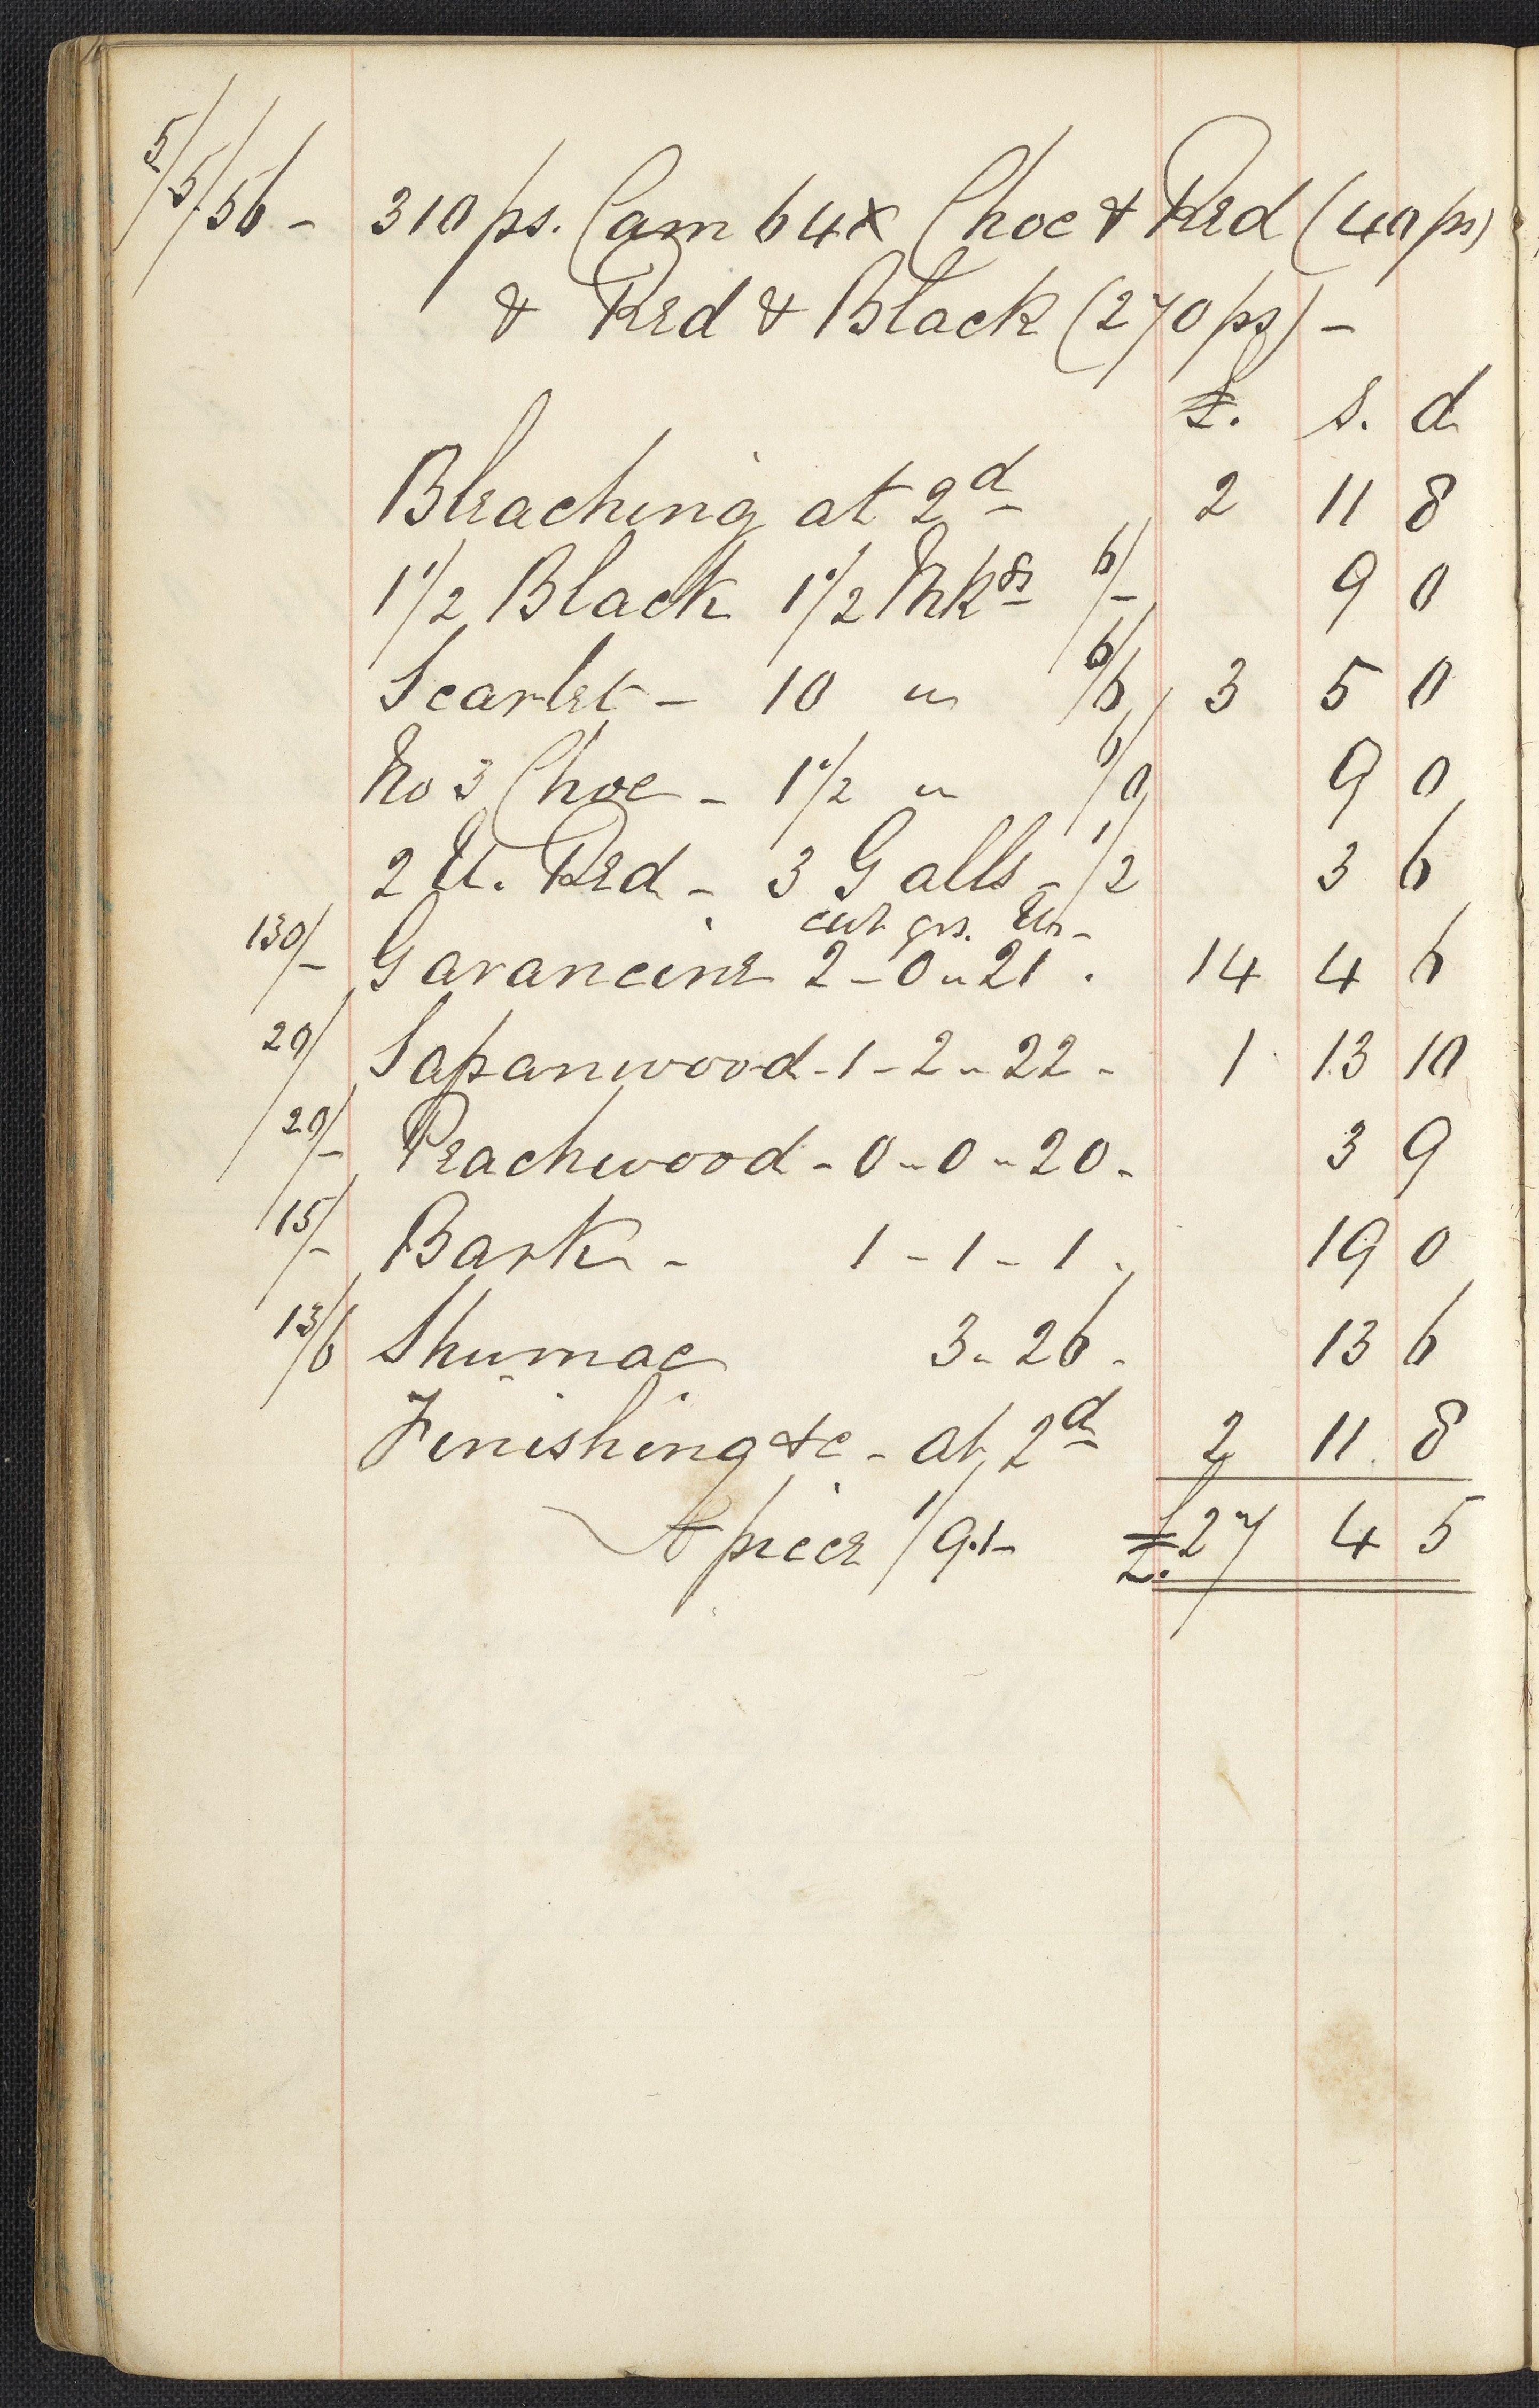 5/5/56 - 310 ps. Cam 64x Choc & Red (40 ps)
& Red & Black (270 ps) -
£. s. d
Bleaching at 2d 2 11 8
1 1/2 Black 1 1/2 Mks 6/- 9 0
Scarlet - 10 " 6/6 3 5 0
No 3 Choc - 1 1/2 " 6/0 9 0
2 U. Red - 3 Galls - 1/2 3 6
cwt qrs. lbs -
130/- Garancine 2 - 0 " 21 . 14 4 6
20/ Sapanwood - 1 - 2 - 22 - 1 13 10
20/- Peachwood - 0 - 0 - 20 - 3 9
15/- Bark - 1 - 1 - 1 - 19 0
13/6 Shumac 3 - 26 - 13 6
Finishing &c - at 2d 2 11 8
A piece 1/9.1- £27 4 5